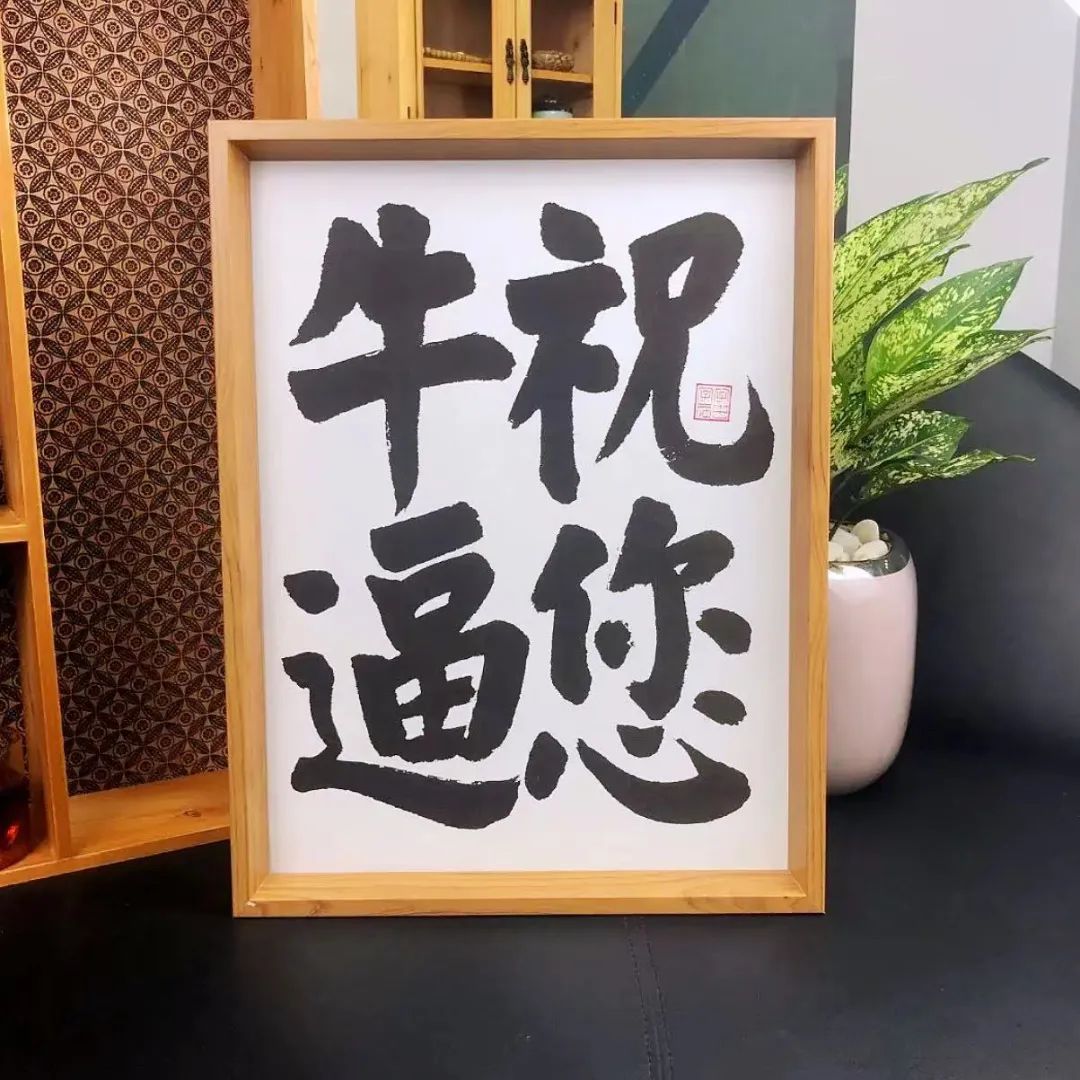 祝您
牛逼